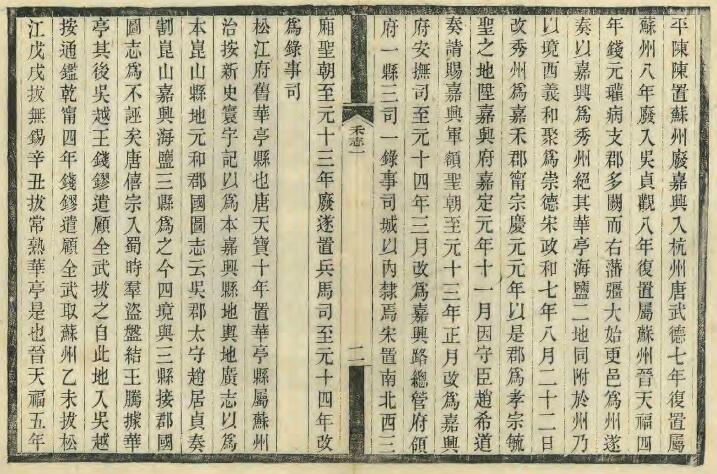 平陳陳置蘇州廢嘉興入杭州唐武德七年復置屬
蘇州八年廢入吳貞觀八年復置屬蘇州晉天福四
年錢元瓘病支郡多闕而右藩彊大始更邑為州遂
奏以嘉興為秀州絕其華亭海鹽二地同附於州乃
以境西義和聚為崇德宋政和七年八月二十二日
改秀州為嘉禾郡甯宗慶元元年以是郡為孝宗毓
聖之地陞嘉興府嘉定元年十一月因守臣趙希道
奏請賜嘉興軍額聖朝至元十三年正月改為嘉興
府安撫司至元十四年三月改為嘉興路總管府領
府一縣三司一錄事司城以內隸焉宋置南北西三
禾志一
二
廂聖朝至元十三年廢遂置兵馬司至元十四年改
為錄事司
松江府舊華亭縣也唐天寶十年置華亭縣屬蘇州
治按新史寰宇記以為本嘉興縣地輿地廣志以為
本崑山縣地元和郡國圖志云吳郡太守趙居貞奏
割崑山嘉興海鹽三縣為之今四境與三縣接郡國
圖志為不誣矣唐僖宗入蜀時羣盜盤結王騰據華
亭其後吳越王錢鏐遣顧全武拔之自此地入吳越
按通鑑乾甯四年錢鏐遣顧全武取蘇州乙未拔松
江戊戌拔無錫辛丑拔常熟華亭是也晉天福五年